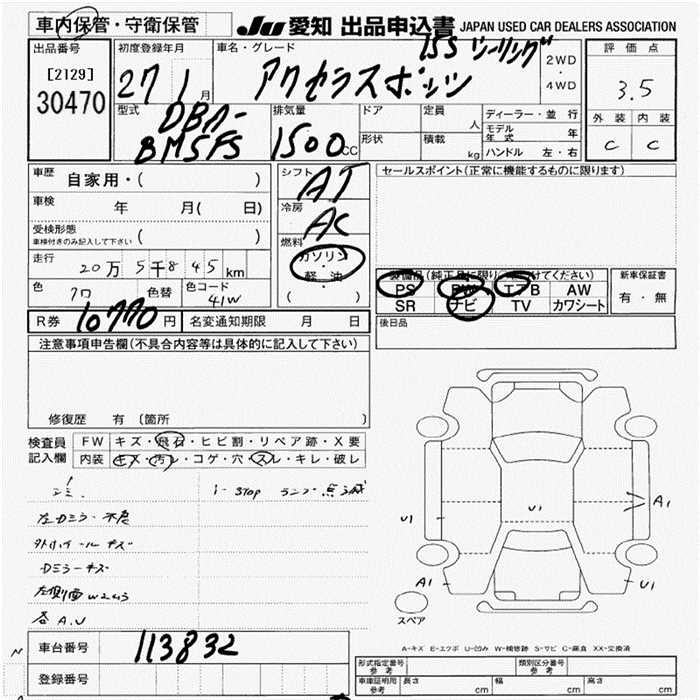 車内保管・守衛保管
JU 愛知 出品申込書 JAPAN USED CAR DEALERS ASSOCIATION
出品番号
[2129]
30470
初度登録年月
27 1 月
車名・グレード
15S ツーリング
アクセラスポーツ
2WD
・
4WD
評価点
3.5
外装 内装
C C
型式
DBA-
BM5FS
排気量
1500 CC
ドア
形状
定員
人
積載
kg
ディーラー・並行
モデル年式 年
ハンドル 左・右
車歴 自家用・( )
車検 年 月( 日)
受検形態
車検付きのみ記入して下さい ( )
走行 20万5千845km
色 クロ 色替 色コード 41W
R券 10770円 名変通知期限 月 日
シフト AT
冷房 AC
燃料
ガソリン
・
軽油
( )
セールスポイント(正常に機能するものに限ります)
装備品(純正品に限り、○印を付けてください)
PS PW エアB AW
SR ナビ TV カワシート
新車保証書
有・無
後日品
注意事項申告欄(不具合内容等は具体的に記入して下さい)
修復歴 有〔箇所 〕
検査員記入欄
FW キズ・飛石・ヒビ割・リペア跡・X要
内装 キズ・汚レ・コゲ・穴・スレ・キレ・破レ
ゴミ. i-stop ランプ点滅
左Dミラー不良
外ホイールキズ
Dミラーキズ
左側面W2 U3
各A.U
U1
U1
A1
A1
U1
スペア
A-キズ E-エクボ U-凹み W-補修跡 S-サビ C-腐食 XX-交換済
車台番号 113832
登録番号
型式指定番号
参考
類別区分番号
参考
車庫証明用
参考
長さ cm 幅 cm 高さ cm